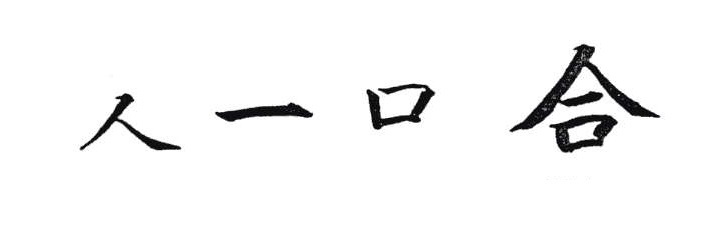 人一口合